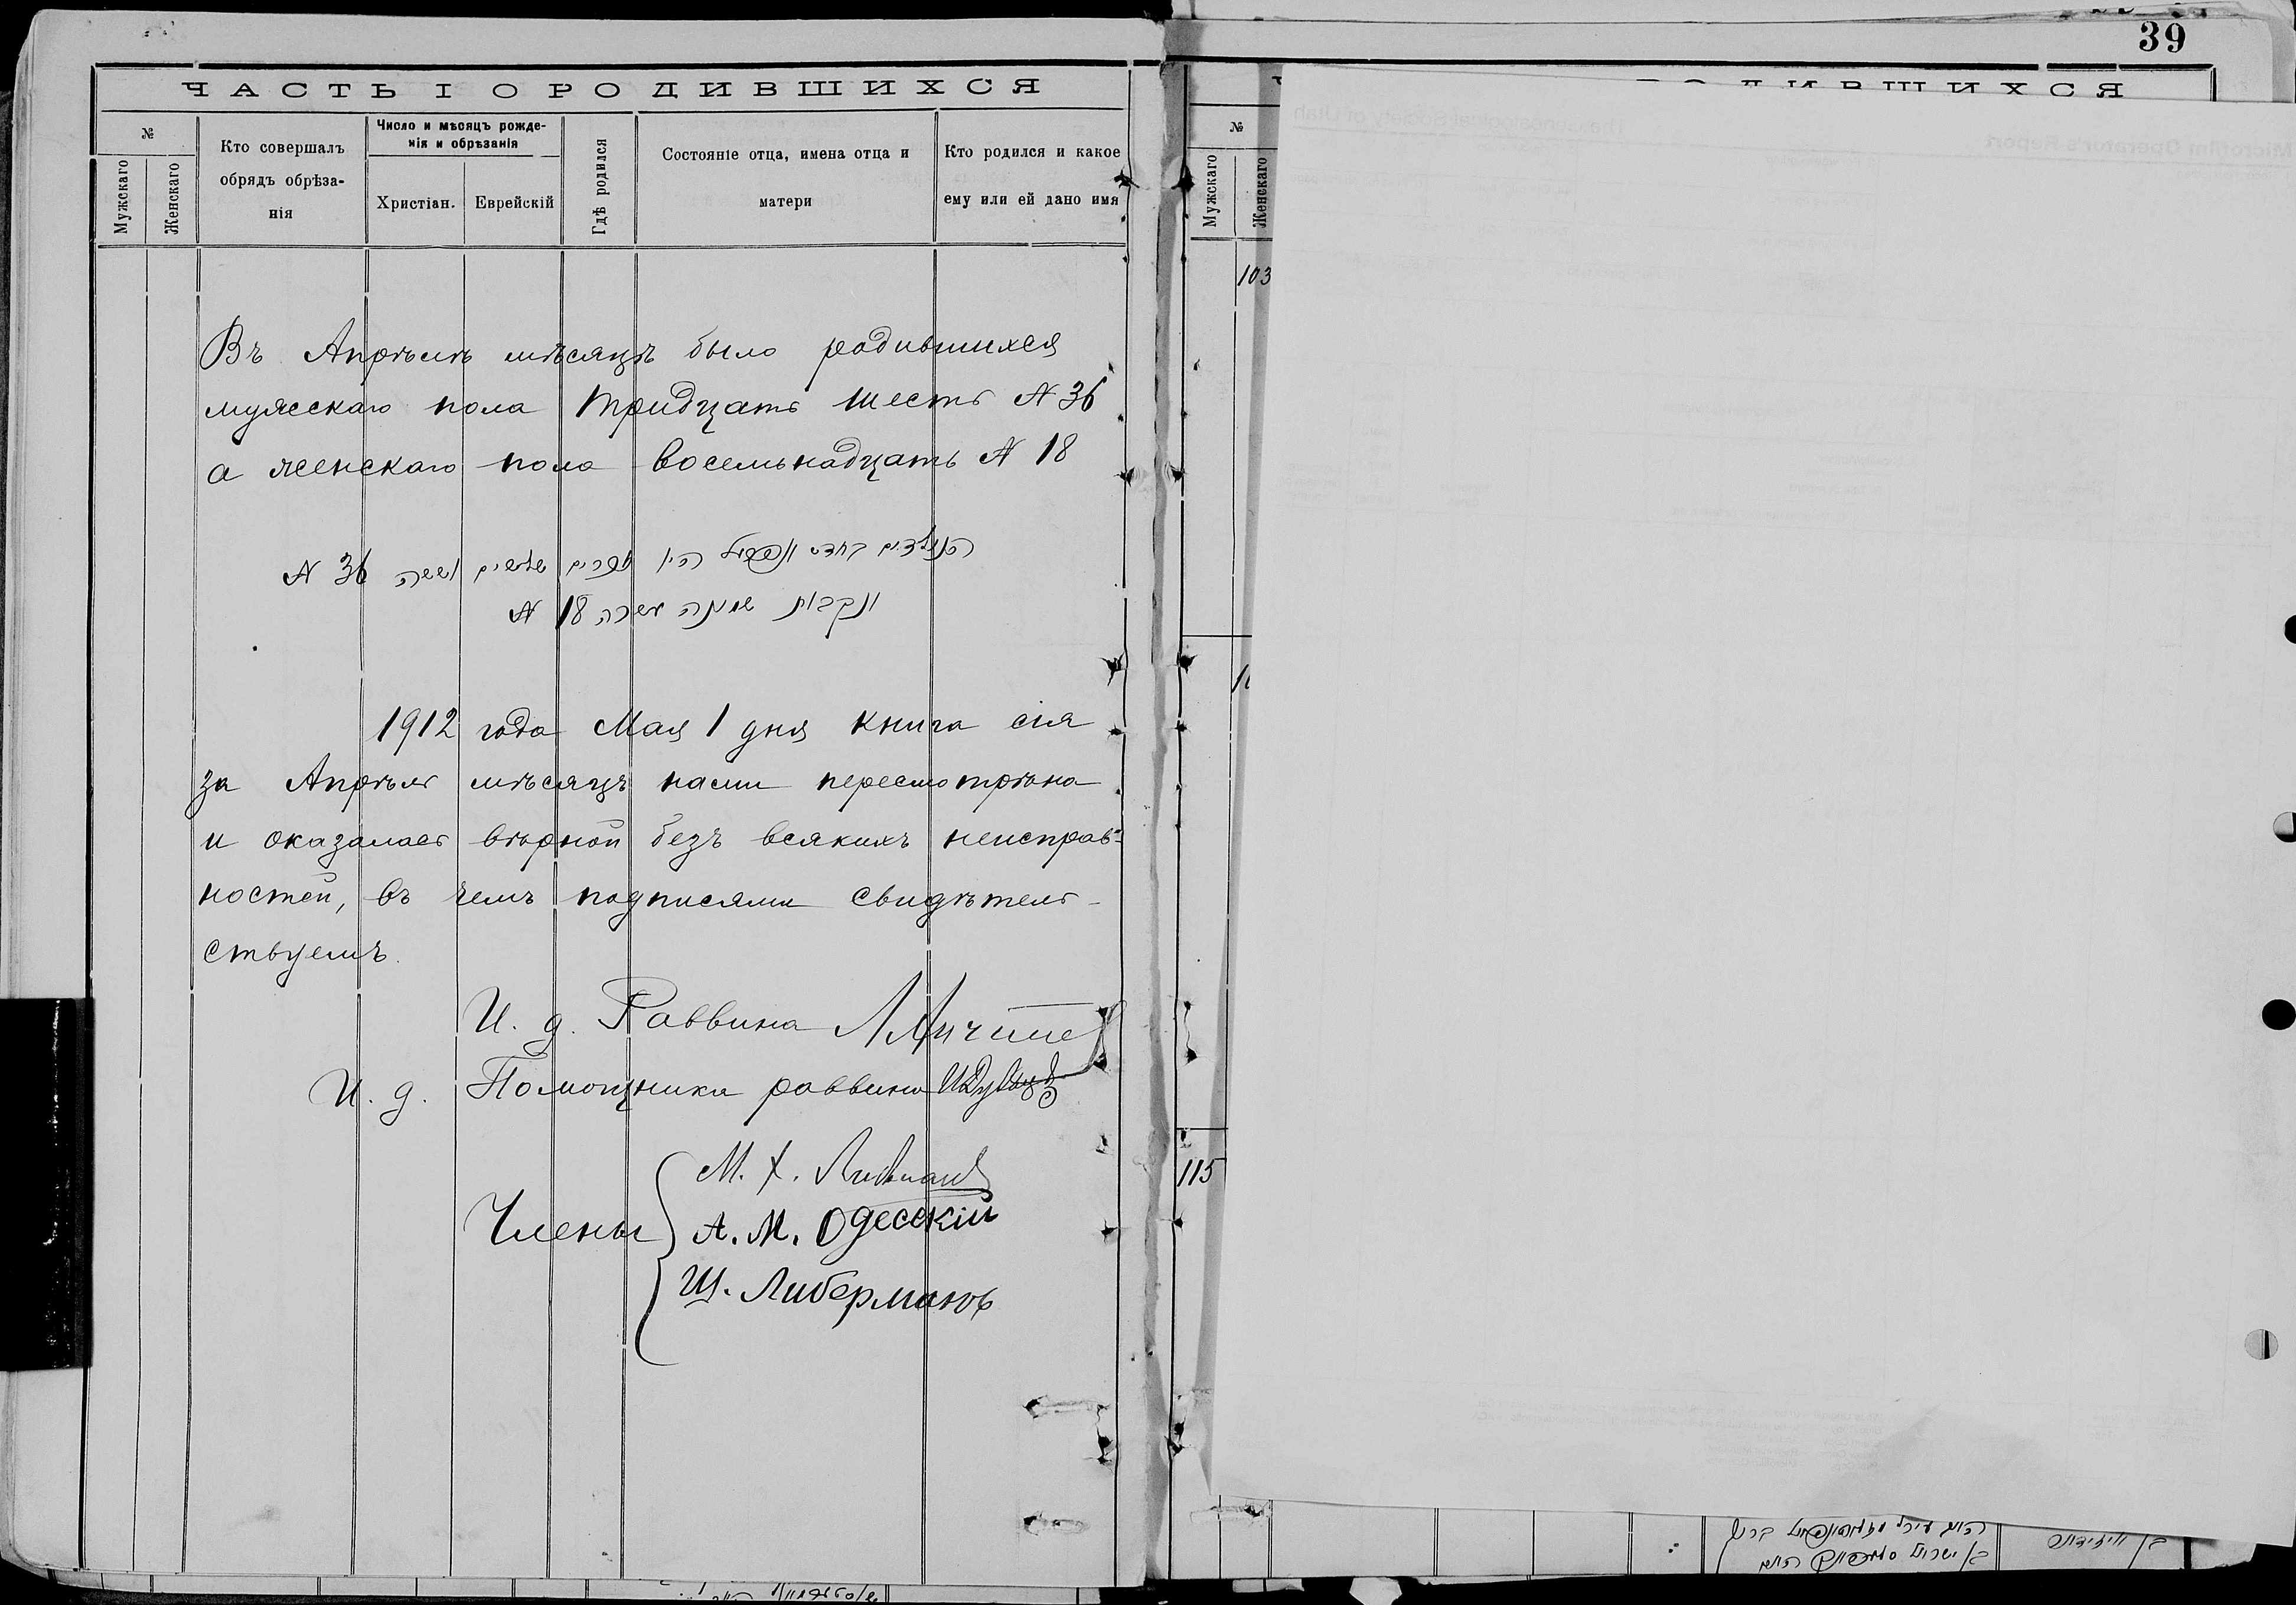 39
ЧАСТЬ I О РОДИВШИХСЯ
№
Мужскаго
Женскаго
Кто совершалъ
обрядъ обрѣза-
нія
Число и мѣсяцъ рожде-
нія и обрѣзанія
Христіан.
Еврейскій
Гдѣ родился
Состояніе отца, имена отца и
матери
Кто родился и какое
ему или ей дано имя
Въ Апрѣлѣ мѣсяцѣ было родившихся
мужескаго пола тридцать шесть № 36
а женскаго пола восемьнадцать № 18
הנולדים בחדש אפריל היו זכרים שלשים וששה № 36
ונקבות שמנה עשרה № 18
1912 года Мая 1 дня книга сія
за Апрѣль мѣсяцъ нами пересмотрѣна
и оказалась вѣрной безъ всякихъ неисправ-
ностей, въ чемъ подписями свидѣтель-
ствуемъ.
И. д. Раввина
И. д. Помощника раввина
Члены
М. Х.
А. М. Одесскій
Ш. Либерманъ
ДИВШИХСЯ
№
Мужскаго
Женскаго
103
115